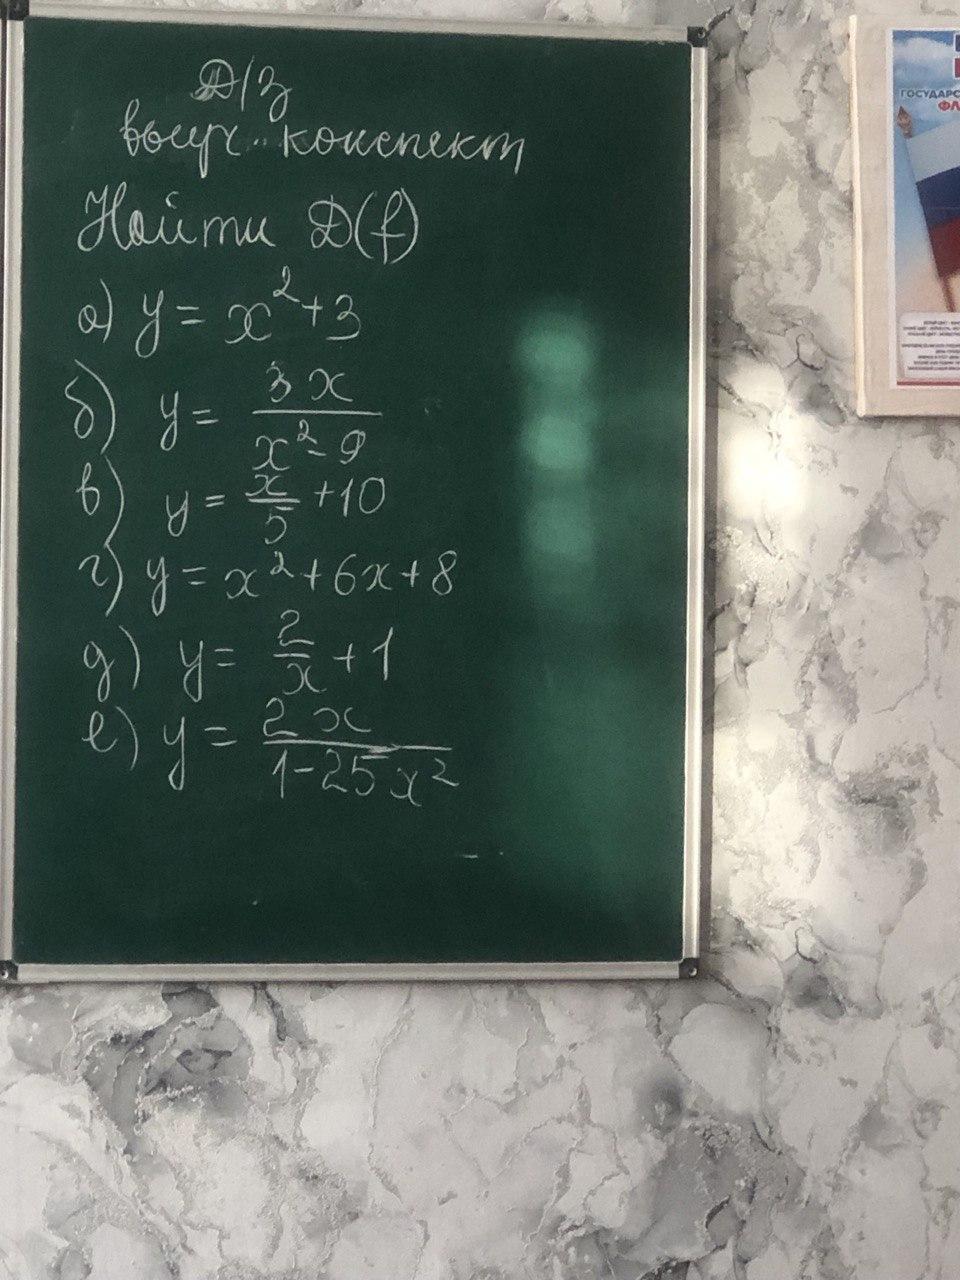 Д/З
выуч. конспект
Найти D(f)
а) y = x² + 3
б) y = 3x / (x² - 9)
в) y = x/5 + 10
г) y = x² + 6x + 8
д) y = 2/x + 1
е) y = 2x / (1 - 25x²)
ГОСУДАРС
ФЛ